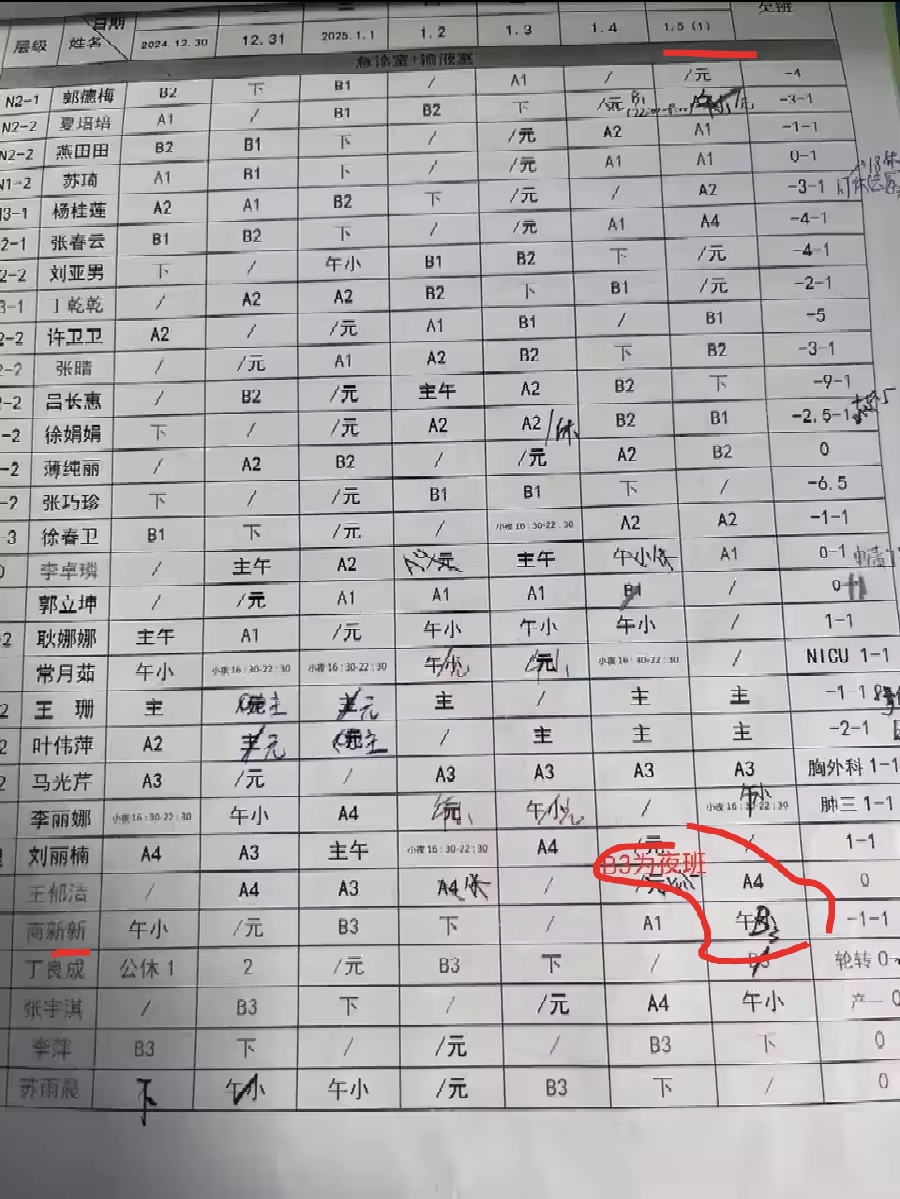 日期 一 二 三 四 五 六 日 欠班
层级 姓名 2024.12.30 12.31 2025.1.1 1.2 1.3 1.4 1.5(1)
急诊室+输液室
N2-1 郭德梅 B2 下 B1 / A1 / /元 -4
N2-2 夏培培 A1 / B1 B2 下 /元 B1 午小 /元 -3-1
N2-2 燕田田 B2 B1 下 / /元 A2 A1 -1-1
N1-2 苏琦 A1 B1 下 / /元 A1 A1 0-1
N3-1 杨桂莲 A2 A1 B2 下 /元 / A2 -3-1
2-1 张春云 B1 B2 下 / /元 A1 A4 -4-1
2-2 刘亚男 下 / 午小 B1 B2 下 /元 -4-1
3-1 丁乾乾 / A2 A2 B2 下 B1 /元 -2-1
2-2 许卫卫 A2 / /元 A1 B1 / B1 -5
-2 张晴 / /元 A1 A2 B2 下 B2 -3-1
-2 吕长惠 / B2 /元 主午 A2 B2 下 -9-1
-2 徐娟娟 下 / /元 A2 A2 /休 B2 B1 -2.5-1
-2 薄纯丽 / A2 B2 / /元 A2 B2 0
-2 张巧珍 下 / /元 B1 B1 下 / -6.5
-3 徐春卫 B1 下 /元 / 小夜16:30-22:30 A2 A2 -1-1
李卓璘 / 主午 A2 /元 主午 午小 A1 0-1
郭立坤 / /元 A1 A1 A1 B1 / 0
-2 耿娜娜 主午 A1 /元 午小 午小 午小 / 1-1
常月茹 午小 小夜16:30-22:30 小夜16:30-22:30 午小 /元 小夜16:30-22:30 / NICU 1-1
2 王 珊 主 主 主 /元 主 / 主 主 -1-1
2 叶伟萍 A2 主 /元 主 / 主 主 主 -2-1
2 马光芹 A3 /元 / A3 A3 A3 A3 胸外科 1-1
李丽娜 小夜16:30-22:30 午小 A4 /元 午小 / 小夜16:30-22:30 午小 肺三 1-1
刘丽楠 A4 A3 主午 小夜16:30-22:30 A4 /元 / 1-1
B3为夜班
王郁洁 / A4 A3 A4 休 / /元 A4 0
商新新 午小 /元 B3 下 / A1 午小 B3 -1-1
丁良成 公休1 2 /元 B3 下 / B3 轮转 0
张宇淇 / B3 下 / /元 A4 午小 产一 0
李萍 B3 下 / /元 / B3 下 0
苏雨晨 下 午小 午小 /元 B3 下 / 0